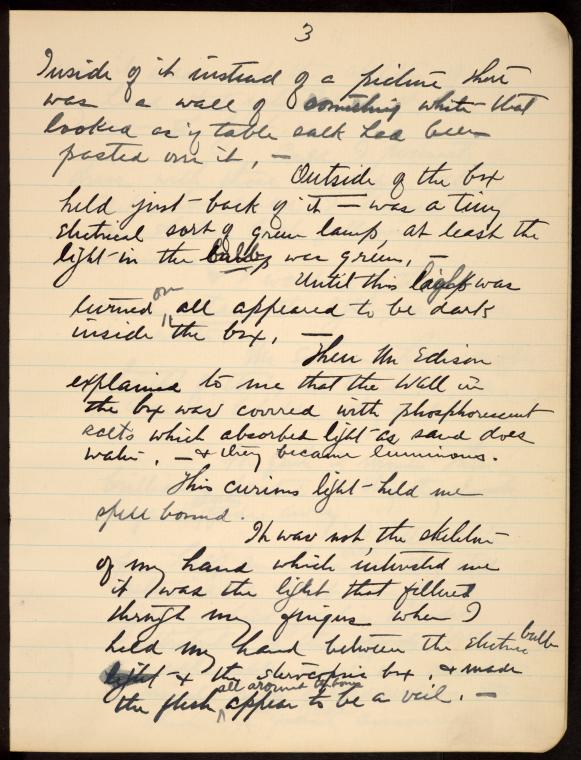 3
Inside of it instead of a picture there
was a wall of something white that
looked as if table salt had been
pasted over it, —
Outside of the box
held just back of it — was a tiny
Electrical sort of green lamp, at least the
light in the bulb was green, —
Until this light was
on
turned all appeared to be dark
inside the box, —
Then Mr Edison
explained to me that the Wall in
the box was covered with phosphorescent
salts which absorbed light as sand does
water, — & they became luminous.
This curious light held me
spell bound.
It was not the skeleton
of my hand which interested me
it was the light that filtered
through my fingers when I
held my hand between the electric bulb
light & the box, & made
all around the bones
the flesh appear to be a veil, —